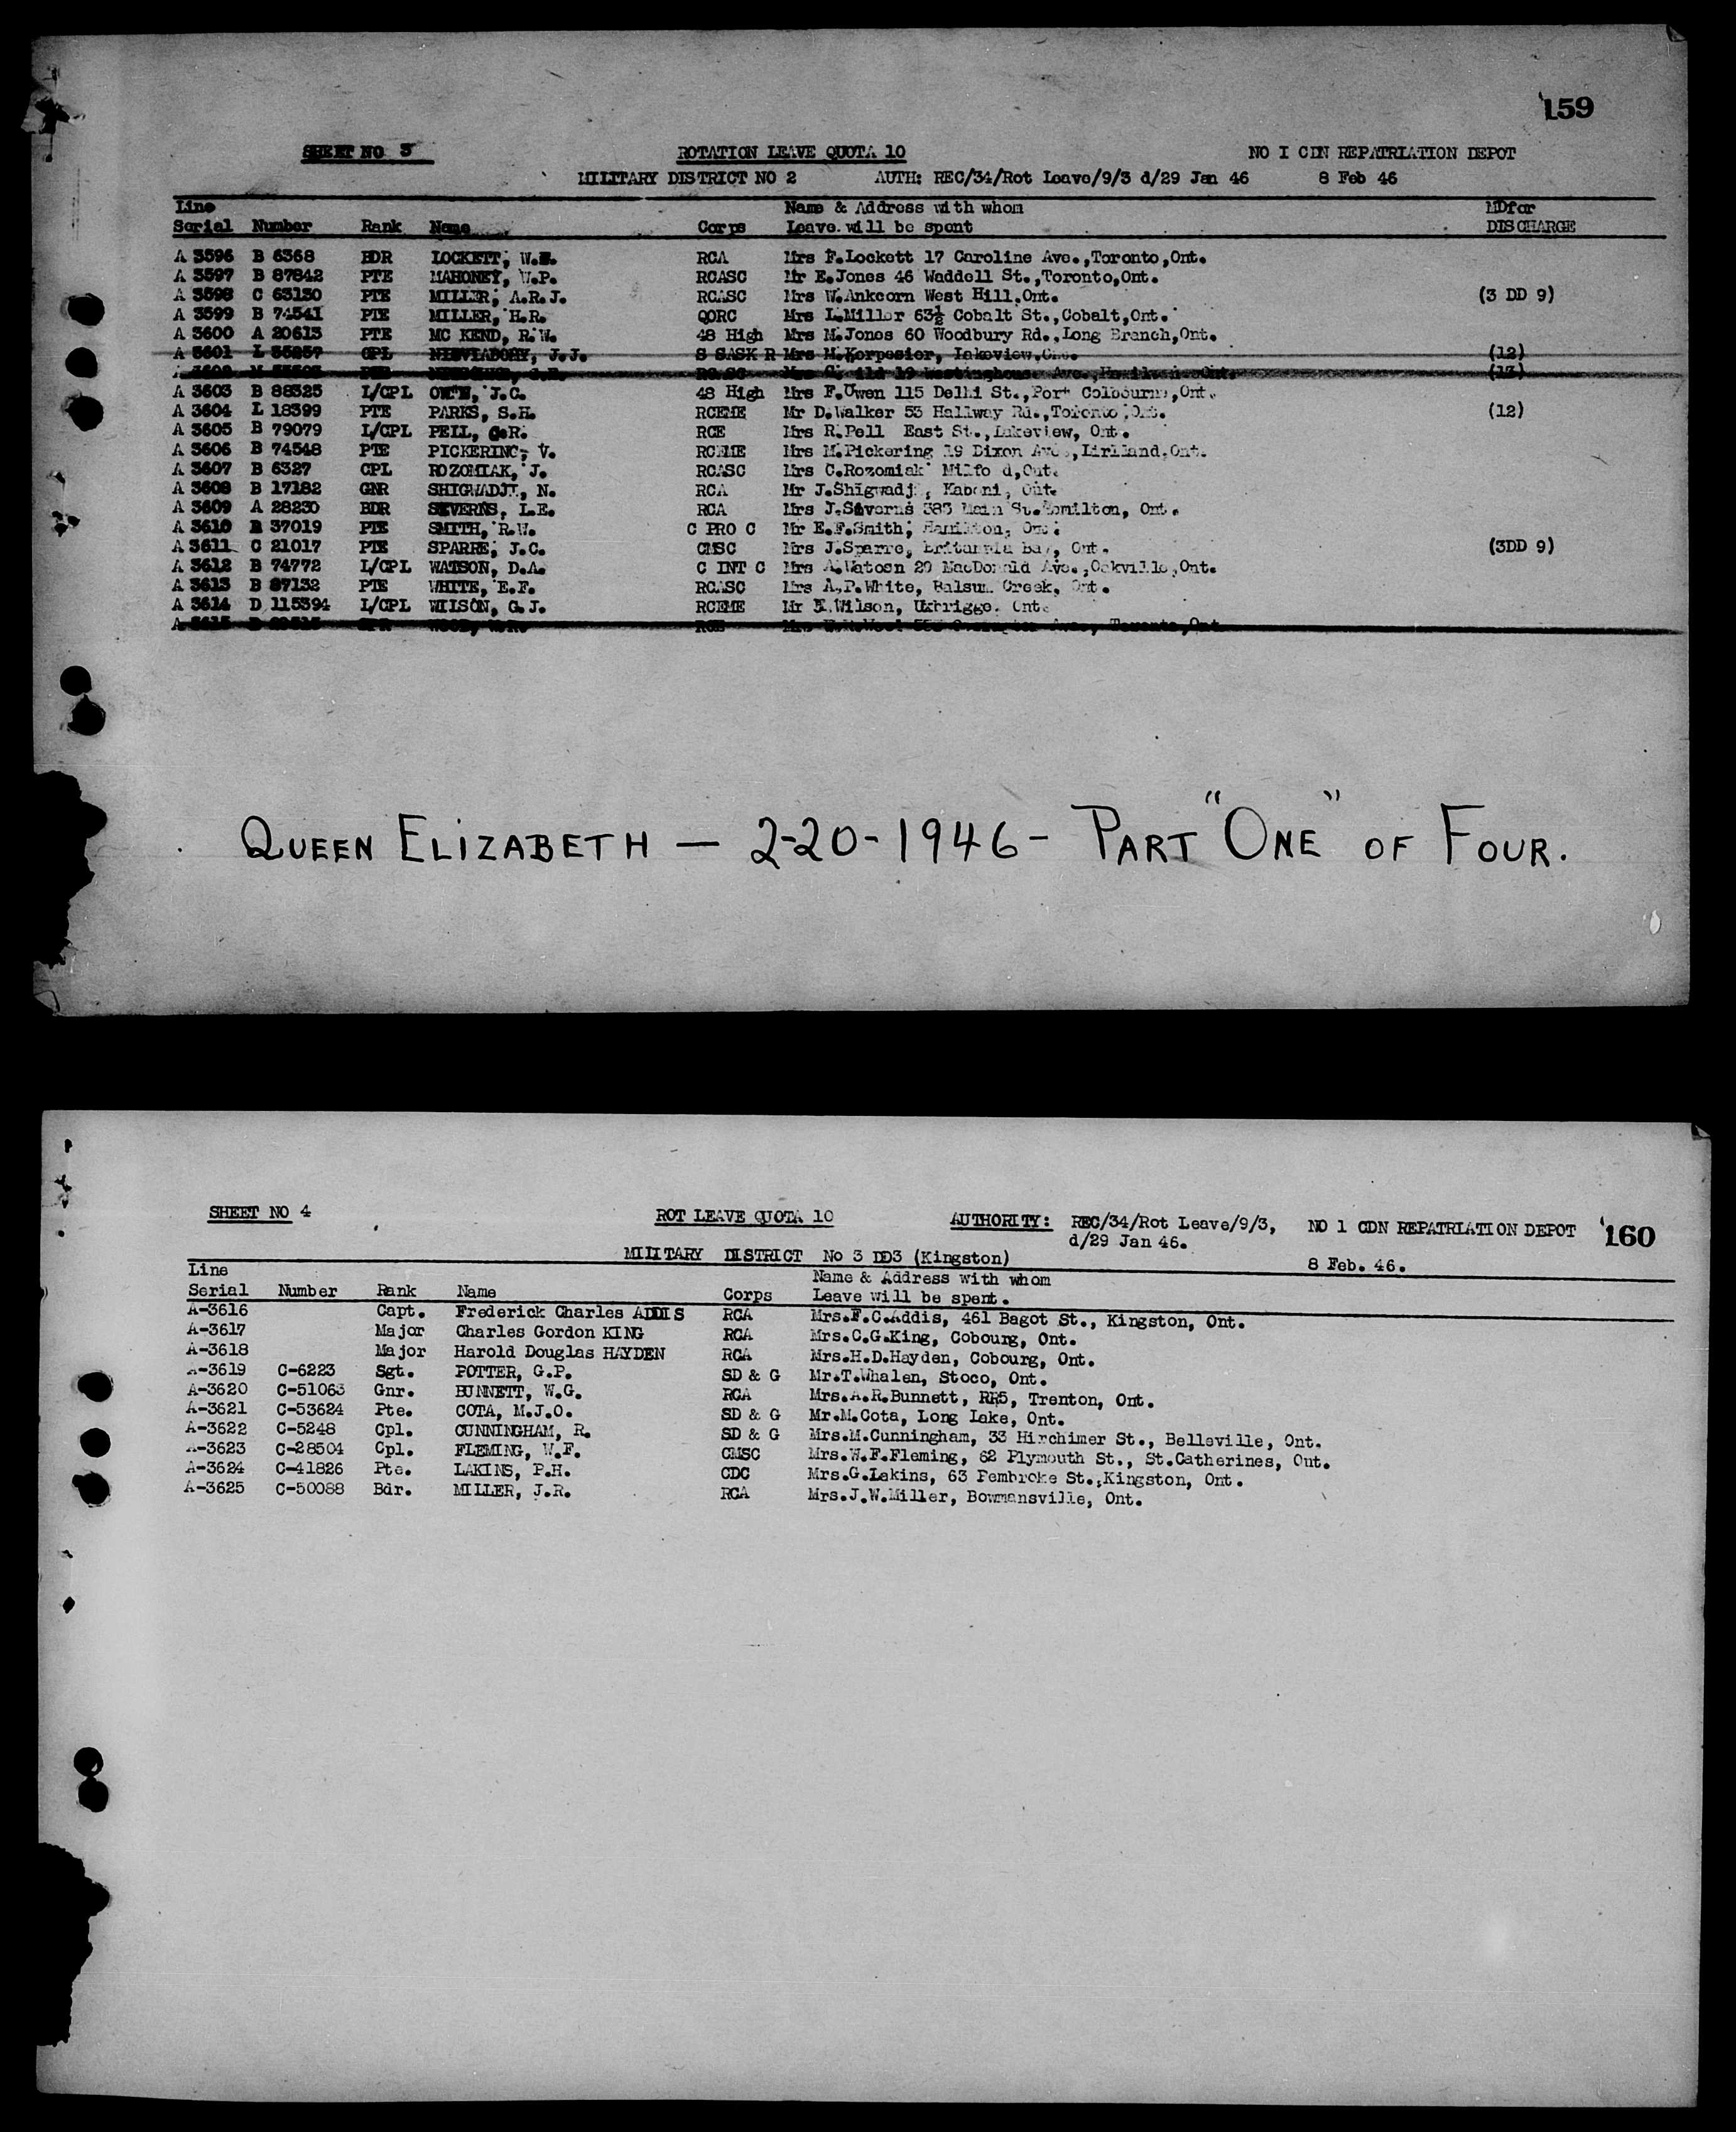 159
SHEET NO 3 ROTATION LEAVE QUOTA 10 NO I CDN REPATRIATION DEPOT
MILITARY DISTRICT NO 2 AUTH: REC/34/Rot Leave/9/3 d/29 Jan 46 8 Feb 46
Line Name & Address with whom MDfor
Serial Number Rank Name Corps Leave will be spent DISCHARGE
A 3596 B 6368 BDR LOCKETT, W. RCA Mrs F.Lockett 17 Caroline Ave.,Toronto,Ont.
A 3597 B 87842 PTE MAHONEY, W.P. RCASC Mr E.Jones 46 Waddell St.,Toronto,Ont.
A 3598 C 63130 PTE MILLER, A.R.J. RCASC Mrs W.Ankcorn West Hill,Ont. (3 DD 9)
A 3599 B 74541 PTE MILLER, H.R. QORC Mrs L.Miller 63½ Cobalt St.,Cobalt,Ont.
A 3600 A 20613 PTE MC KEND, R.W. 48 High Mrs M.Jones 60 Woodbury Rd.,Long Branch,Ont.
A 3601 L CPL J.J. S SASK R Mrs M.Korpesior, Lakeview,Ont. (12)
(13)
A 3603 B 88325 L/CPL OWEN, J.C. 48 High Mrs F.Owen 115 Delhi St.,Port Colbourne,Ont.
A 3604 L 18399 PTE PARKS, S.H. RCEME Mr D.Walker 53 Hallway Rd.,Toronto,Ont. (12)
A 3605 B 79079 L/CPL PELL, G.R. RCE Mrs R.Pell East St.,Lakeview, Ont.
A 3606 B 74548 PTE PICKERING, V. RCEME Mrs M.Pickering 19 Dixon Ave., Ont.
A 3607 B 6327 CPL ROZOMIAK, J. RCASC Mrs C.Rozomiak Milfo d,Ont.
A 3608 B 17182 GNR SHIGWADJI, N. RCA Mr J.Shigwadj , Kaboni, Ont.
A 3609 A 28230 BDR SEVERNS, L.E. RCA Mrs J.Severns 385 Main St.Hamilton, Ont.
A 3610 B 37019 PTE SMITH, R.W. C PRO C Mr E.F.Smith, Hamilton, Ont.
A 3611 C 21017 PTE SPARRE, J.C. CMSC Mrs J.Sparre, Britannia Bay, Ont. (3DD 9)
A 3612 B 74772 L/CPL WATSON, D.A. C INT C Mrs A.Watosn 29 MacDonald Ave.,Oakville,Ont.
A 3613 B 87132 PTE WHITE, E.F. RCASC Mrs A.P.White, Balsum Creek, Ont.
A 3614 D 115394 L/CPL WILSON, G.J. RCEME Mr Wilson, Uxbrigge. Ont.
A 3615 RCE Ave., Toronto,Ont
QUEEN ELIZABETH — 2-20-1946- PART "ONE" OF FOUR.
SHEET NO 4 ROT LEAVE QUOTA 10 AUTHORITY: REC/34/Rot Leave/9/3, NO 1 CDN REPATRIATION DEPOT 160
d/29 Jan 46.
MILITARY DISTRICT No 3 DD3 (Kingston) 8 Feb. 46.
Line Name & Address with whom
Serial Number Rank Name Corps Leave will be spent.
A-3616 Capt. Frederick Charles ADDIS RCA Mrs.F.C.Addis, 461 Bagot St., Kingston, Ont.
A-3617 Major Charles Gordon KING RCA Mrs.C.G.King, Cobourg, Ont.
A-3618 Major Harold Douglas HAYDEN RCA Mrs.H.D.Hayden, Cobourg, Ont.
A-3619 C-6223 Sgt. POTTER, G.P. SD & G Mr.T.Whalen, Stoco, Ont.
A-3620 C-51063 Gnr. BUNNETT, W.G. RCA Mrs.A.R.Bunnett, RR5, Trenton, Ont.
A-3621 C-53624 Pte. COTA, M.J.O. SD & G Mr.M.Cota, Long Lake, Ont.
A-3622 C-5248 Cpl. CUNNINGHAM, R. SD & G Mrs.M.Cunningham, 33 Hirchimer St., Belleville, Ont.
A-3623 C-28504 Cpl. FLEMING, W.F. CMSC Mrs.W.F.Fleming, 62 Plymouth St., St.Catherines, Ont.
A-3624 C-41826 Pte. LAKINS, P.H. CDC Mrs.G.Lakins, 63 Pembroke St.,Kingston, Ont.
A-3625 C-50088 Bdr. MILLER, J.R. RCA Mrs.J.W.Miller, Bowmansville, Ont.